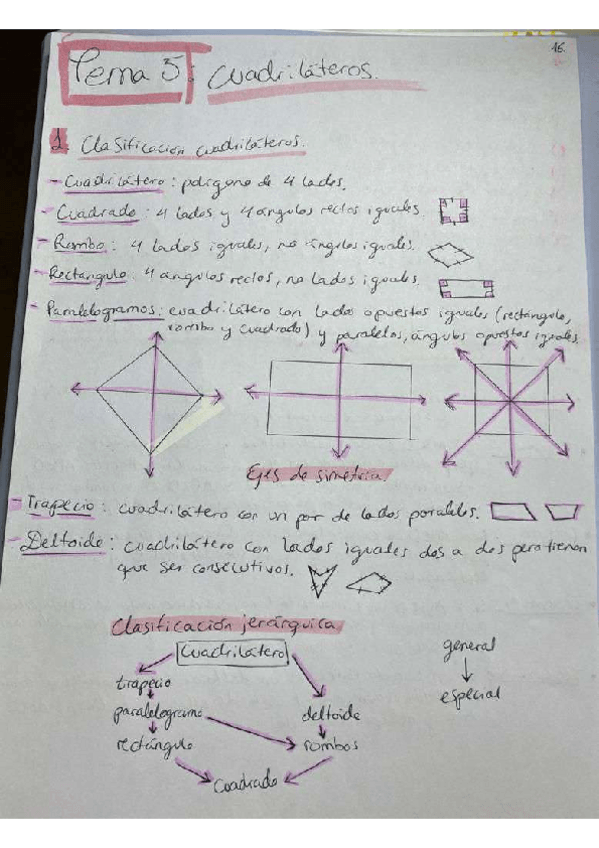 16.
Tema 5: Cuadriláteros.
1. Clasificación cuadriláteros.
- Cuadrilátero: polígono de 4 lados.
- Cuadrado: 4 lados y 4 ángulos rectos iguales.
- Rombo: 4 lados iguales, no ángulos iguales.
- Rectángulo: 4 ángulos rectos, no lados iguales.
- Paralelogramos: cuadrilátero con lados opuestos iguales (rectángulo,
rombo y cuadrado) y paralelos, ángulos opuestos iguales.
Ejes de simetria.
- Trapecio: cuadrilátero con un par de lados paralelos.
- Deltoide: cuadrilátero con lados iguales dos a dos pero tienen
que ser consecutivos.
Clasificación jerárquica
Cuadrilátero
general
trapecio
especial
paralelogramo
deltoide
rectángulo
rombos
Cuadrado